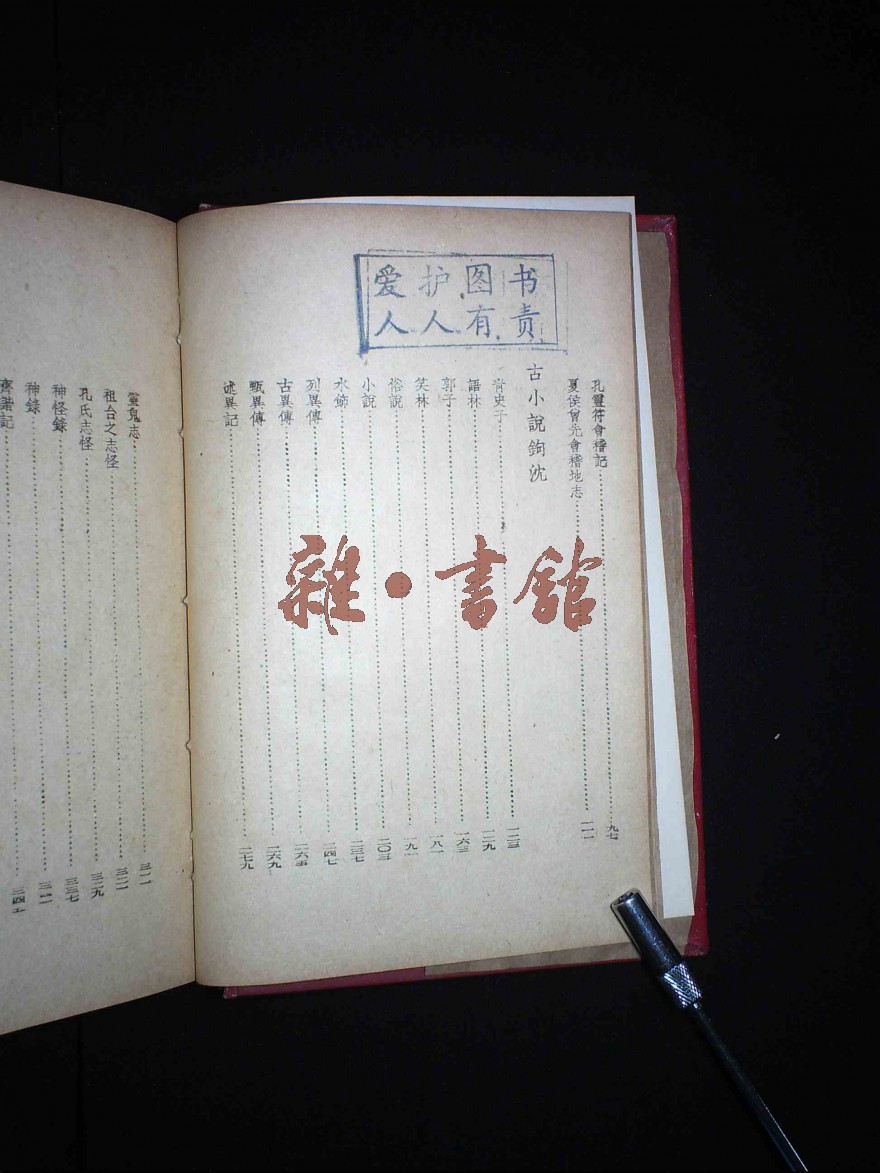 爱护图书
人人有责
孔靈符會稽記……九七
夏侯曾先會稽地志……
古小說鉤沈
青史子……一二三
語林……一二九
郭子……一六三
笑林……一八一
俗說……一九一
小說……二〇三
水飾……二三七
列異傳……二四七
古異傳……二六五
甄異傳……二六九
述異記……二七九
靈鬼志……三一一
祖台之志怪……三二一
孔氏志怪……三二九
神怪錄……三三七
神錄……
齊諧記……
雜·書館